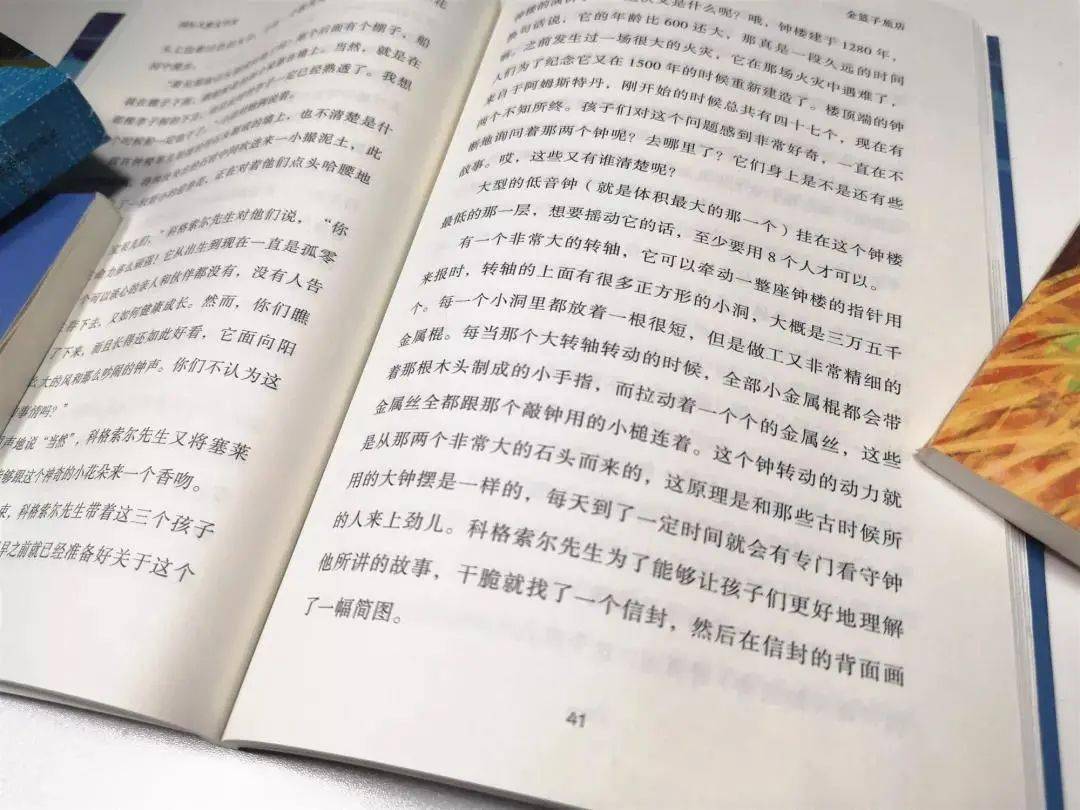 国际大奖小说
花
船
那个后面有个棚子,
当然,就是在
一定已经熟透了。我想
墙上,也不清楚是什
间吹进来一小撮泥土,此
正在对着他们点头哈腰地
科格索尔先生对他们说,“你
力多么顽强!它从出生到现在一直是孤零
个可以谈心的亲人和伙伴都没有,没有人告
下去,又如何健康成长。然而,你们瞧
了下来,而且长得还如此好看,它面向阳
么大的风和那么吵闹的钟声。你们不认为这
事情吗?”
声地说“当然”,科格索尔先生又将塞莱
能够跟这个神奇的小花朵来一个香吻。
束,科格索尔先生带着这三个孩子
早之前就已经准备好关于这个
金篮子旅店
又是什么呢?哦,钟楼建于1280年,
换句话说,它的年龄比600还大,那真是一段久远的时间
啊。之前发生过一场很大的火灾,它在那场火灾中遇难了,
人们为了纪念它又在1500年的时候重新建造了。楼顶端的钟
来自于阿姆斯特丹,刚开始的时候总共有四十七个,现在有
两个不知所终。孩子们对这个问题感到非常好奇,一直在不
断地询问着那两个钟呢?去哪里了?它们身上是不是还有些
故事。哎,这些又有谁清楚呢?
大型的低音钟(就是体积最大的那一个)挂在这个钟楼
最低的那一层,想要摇动它的话,至少要用8个人才可以。
有一个非常大的转轴,它可以牵动一整座钟楼的指针用
来报时,转轴的上面有很多正方形的小洞,大概是三万五千
个。每一个小洞里都放着一根很短,但是做工又非常精细的
金属棍。每当那个大转轴转动的时候,全部小金属棍都会带
着那根木头制成的小手指,而拉动着一个个的金属丝,这些
金属丝全都跟那个敲钟用的小槌连着。这个钟转动的动力就
是从那两个非常大的石头而来的,这原理是和那些古时候所
用的大钟摆是一样的,每天到了一定时间就会有专门看守钟
的人来上劲儿。科格索尔先生为了能够让孩子们更好地理解
他所讲的故事,干脆就找了一个信封,然后在信封的背面画
了一幅简图。
41